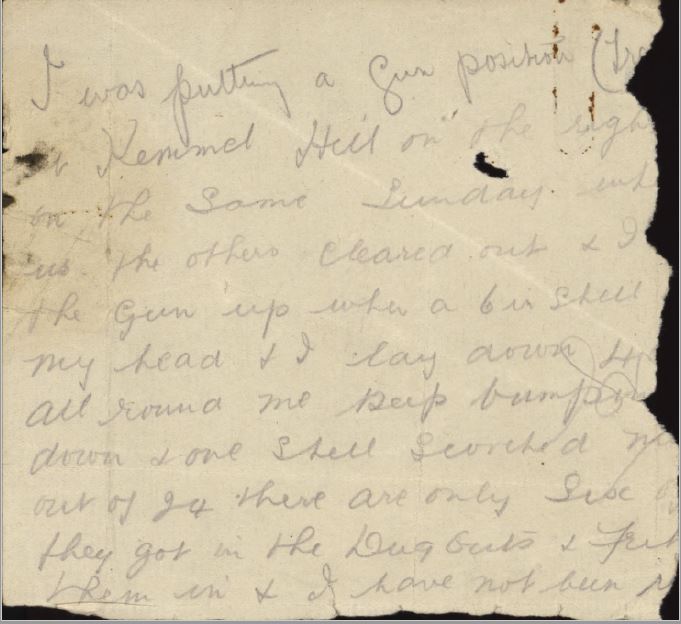 I was putting a Gun position (Tre
at Kemmel Hill on the righ
on the Same Sunday whe
us. the others Cleared out & I
the Gun up when a 6 in Shell
my head & I lay down &
All round me Keep bumpin
down & one Shell Scorched m
out of 24 there are only Six
they got in the Dug Outs &
them in & I have not been